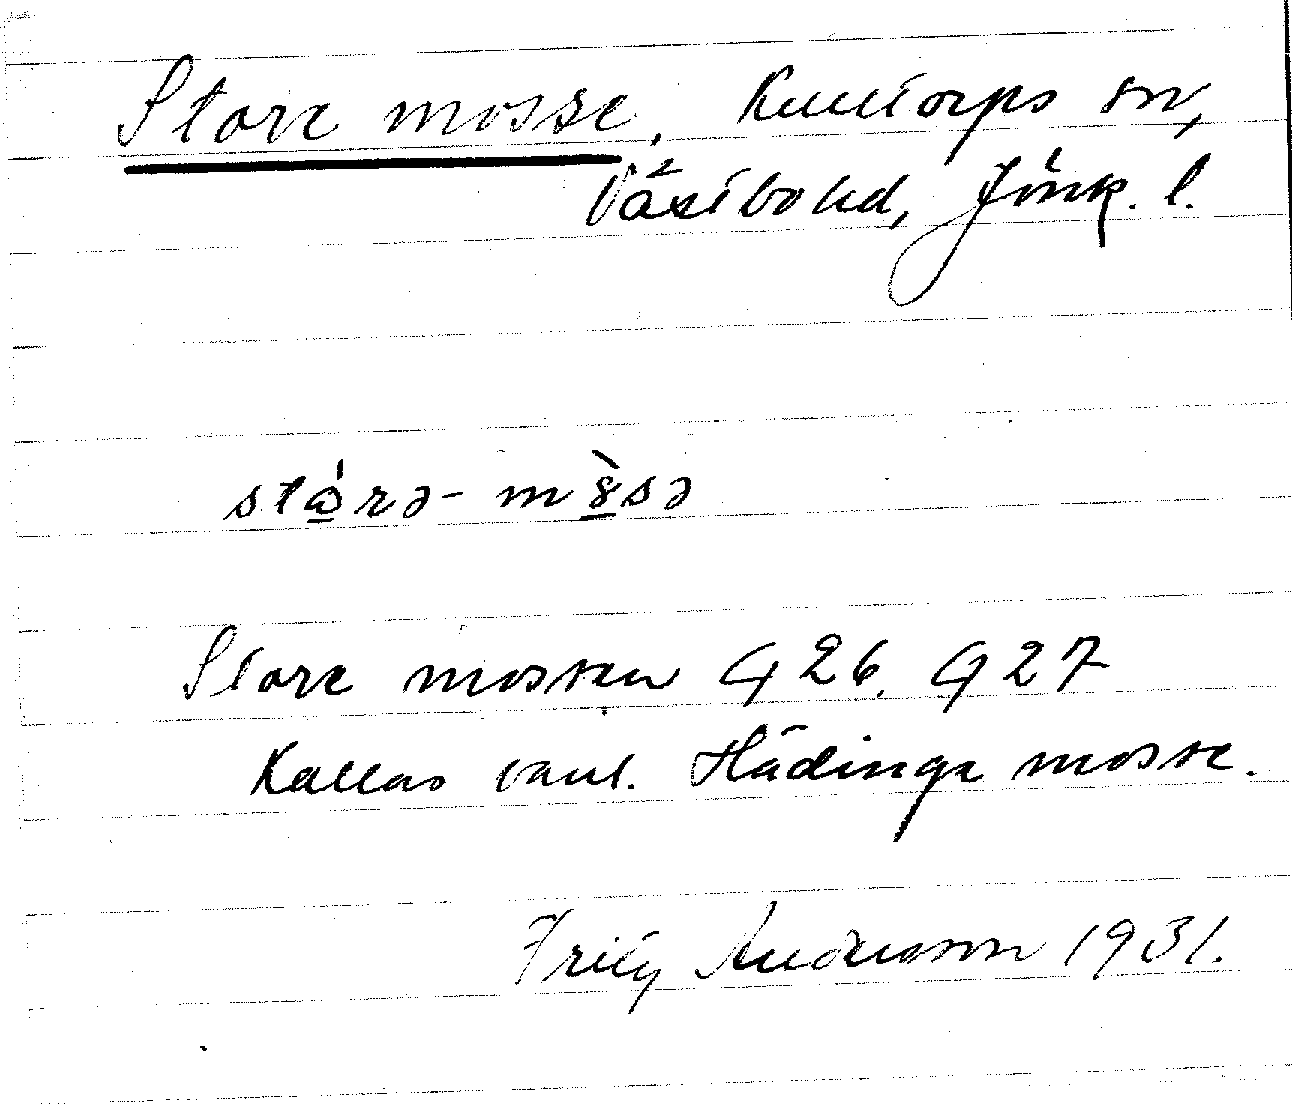 Store mosse, Kulltorps sn,
Västbo hd, Jönk. l.
stórə- mòsə
Store mossen G 26, G 27
Kallas vanl. Hädinge mosse.
Fritz Andersson 1931.